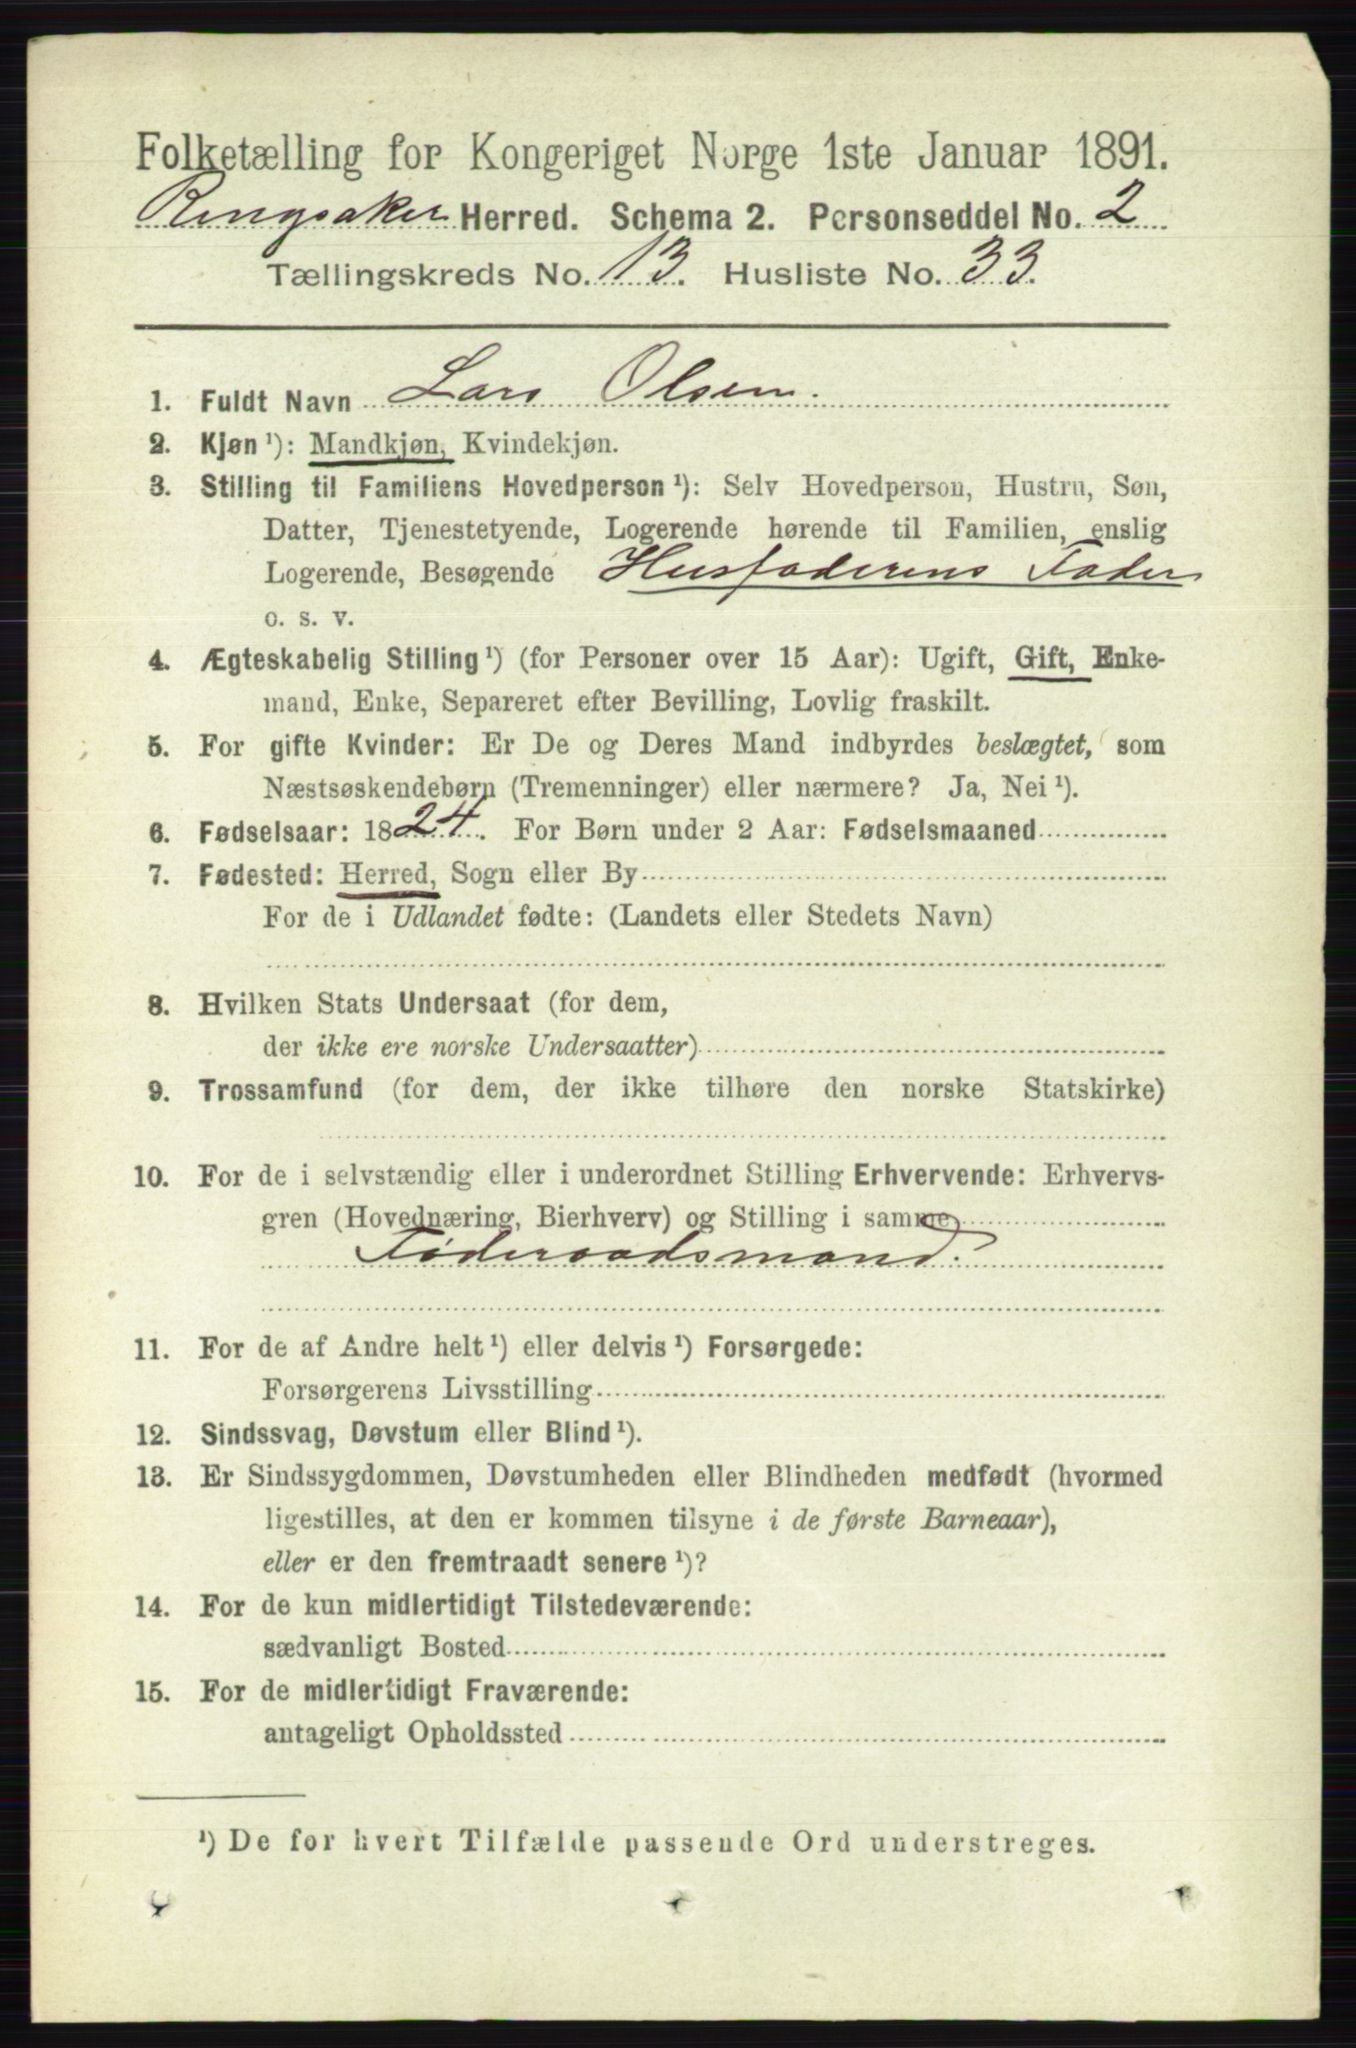 Folketælling for Kongeriget Norge 1ste Januar 1891.
Ringsaker Herred. Schema 2. Personseddel No. 2
Tællingskreds No. 13. Husliste No. 33.
1. Fuldt Navn Lars Olsen.
2. Kjøn ¹): Mandkjøn, Kvindekjøn.
3. Stilling til Familiens Hovedperson ¹): Selv Hovedperson, Hustru, Søn,
Datter, Tjenestetyende, Logerende hørende til Familien, enslig
Logerende, Besøgende Husfaderens Fader
o. s. v.
4. Ægteskabelig Stilling ¹) (for Personer over 15 Aar): Ugift, Gift, Enke-
mand, Enke, Separeret efter Bevilling, Lovlig fraskilt.
5. For gifte Kvinder: Er De og Deres Mand indbyrdes beslægtet, som
Næstsøskendebørn (Tremenninger) eller nærmere? Ja, Nei ¹).
6. Fødselsaar: 1824. For Børn under 2 Aar: Fødselsmaaned
7. Fødested: Herred, Sogn eller By
For de i Udlandet fødte: (Landets eller Stedets Navn)
8. Hvilken Stats Undersaat (for dem,
der ikke ere norske Undersaatter)
9. Trossamfund (for dem, der ikke tilhøre den norske Statskirke)
10. For de i selvstændig eller i underordnet Stilling Erhvervende: Erhvervs-
gren (Hovednæring, Bierhverv) og Stilling i samme
Føderaadsmand.
11. For de af Andre helt ¹) eller delvis ¹) Forsørgede:
Forsørgerens Livsstilling
12. Sindssvag, Døvstum eller Blind ¹).
13. Er Sindssygdommen, Døvstumheden eller Blindheden medfødt (hvormed
ligestilles, at den er kommen tilsyne i de første Barneaar),
eller er den fremtraadt senere ¹)?
14. For de kun midlertidigt Tilstedeværende:
sædvanligt Bosted
15. For de midlertidigt Fraværende:
antageligt Opholdssted
¹) De for hvert Tilfælde passende Ord understreges.